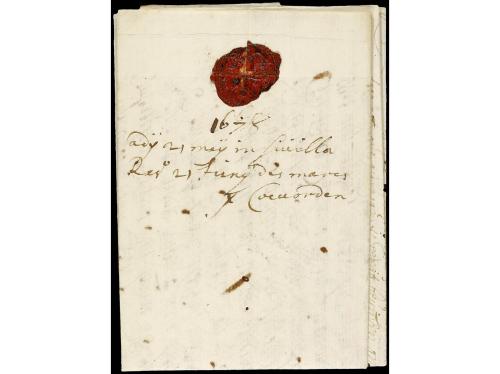 1678
ady 21 mey in Sivilla
Resº 21 Juny des mares
Coeuorden